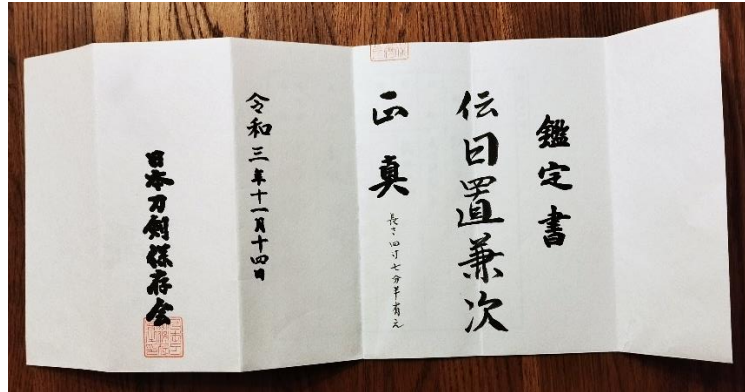 鑑定書
伝日置兼次
正真
長さ四寸七分半有之
令和三年十一月十四日
日本刀剣保存会